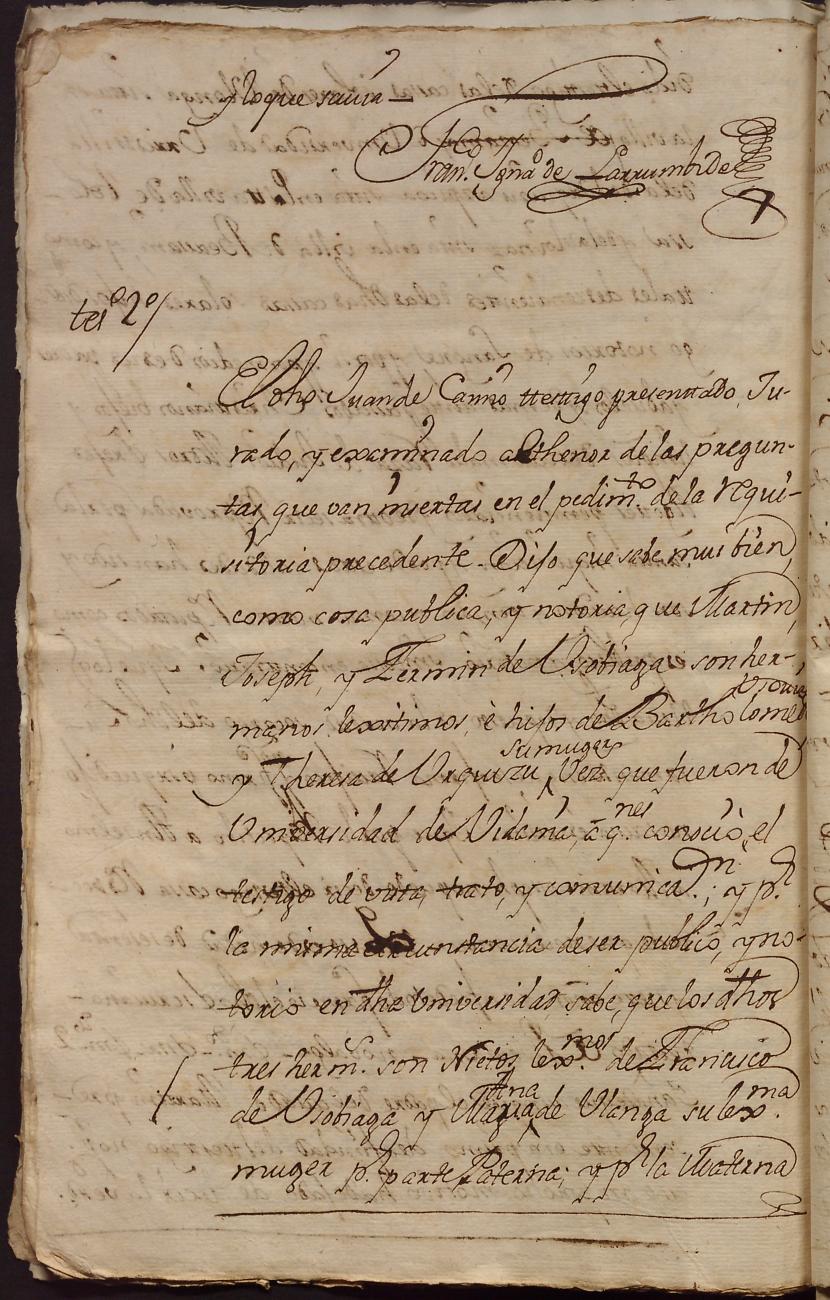 y lo que savia
Fran.co Ygn.o de Larrumbide
tes.o 2.o /
El dho Juan de Camio ttestigo presenttado, Ju-
rado, y examinado al thenor de las pregun-
tas, que van insertas en el pedim.to de la requi-
sitoria precedente. Dijo que sabe mui bien,
como cosa publica, y notoria, que Martin,
Joseph, y Fermin de Usobiaga son her-
manos lexitimos, è hijos de Bartholome
y Theresa de Urquizu su muger, Vez.s que fueron de
Vniversidad de Vidania, à q.nes conociò, el
testigo de vista, trato, y comunica.on; y p.r
la misma circunstancia de ser publico, y no-
torio en dha Universidad sabe, que los dhos
tres herm.s son Nietos lex.mos de Francisco
de Usobiaga y Maria Ana de Ulanga su lex.ma
muger p.r parte Paterna; y p.r la Materna